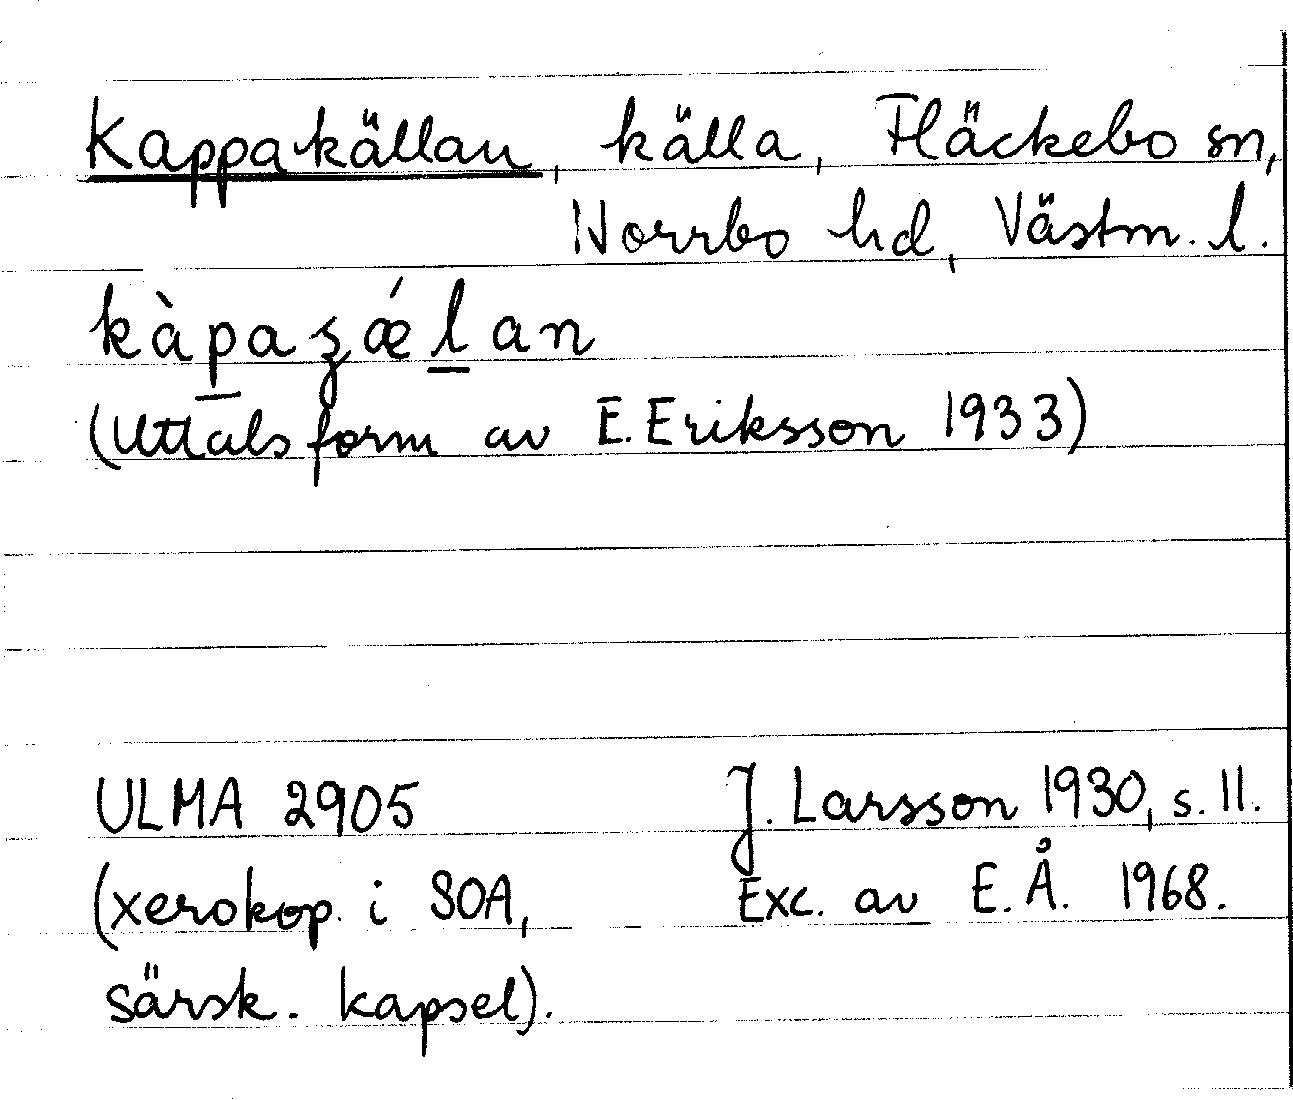 Kappakällan, källa, Fläckebo sn,
Norrbo hd, Västm. l.
kàpaʒǽlan
(Uttalsform av E. Eriksson 1933)
ULMA 2905 J. Larsson 1930, s. 11.
(xerokop. i SOA, Exc. av E.Å. 1968.
särsk. kapsel).